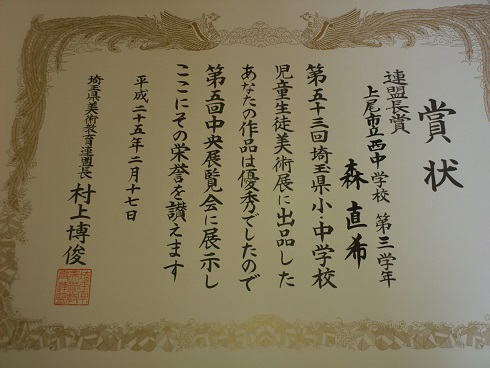 賞状
連盟長賞
上尾市立西中学校 第三学年
森 直希
第五十三回埼玉県小・中学校
児童生徒美術展に出品した
あなたの作品は優秀でしたので
第五回中央展覧会に展示し
ここにその栄誉を讃えます
平成二十五年二月十七日
埼玉県美術教育連盟長 村上博俊